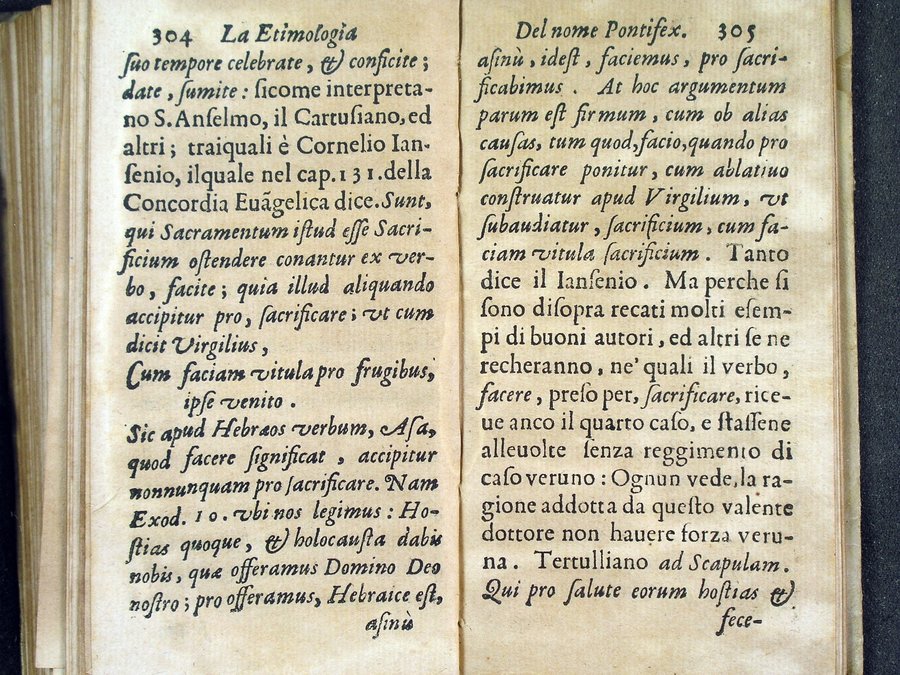 304 La Etimologia
ſuo tempore celebrate, & conficite;
date, ſumite: ſicome interpreta-
no S. Anſelmo, il Cartuſiano, ed
altri; traiquali è Cornelio Ian-
ſenio, ilquale nel cap. 131. della
Concordia Euãgelica dice. Sunt,
qui Sacramentum iſtud eſſe Sacri-
ficium oſtendere conantur ex ver-
bo, facite; quia illud aliquando
accipitur pro, ſacrificare; vt cum
dicit Virgilius,
Cum faciam vitula pro frugibus,
ipſe venito.
Sic apud Hebræos verbum, Aſa,
quod facere ſignificat, accipitur
nonnunquam pro ſacrificare. Nam
Exod. 10. vbi nos legimus: Ho-
ſtias quoque, & holocauſta dabis
nobis, quæ offeramus Domino Deo
noſtro; pro offeramus, Hebraice eſt,
aſinù
Del nome Pontifex. 305
aſinù, ideſt, faciemus, pro ſacri-
ficabimus. At hoc argumentum
parum eſt firmum, cum ob alias
cauſas, tum quod, facio, quando pro
ſacrificare ponitur, cum ablatiuo
conſtruatur apud Virgilium, vt
ſubaudiatur, ſacrificium, cum fa-
ciam vitula ſacrificium. Tanto
dice il Ianſenio. Ma perche ſi
ſono diſopra recati molti eſem-
pi di buoni autori, ed altri ſe ne
recheranno, ne' quali il verbo,
facere, preſo per, ſacrificare, rice-
ue anco il quarto caſo, e ſtaſſene
alleuolte ſenza reggimento di
caſo veruno: Ognun vede, la ra-
gione addotta da queſto valente
dottore non hauere forza veru-
na. Tertulliano ad Scapulam.
Qui pro ſalute eorum hoſtias &
fece-